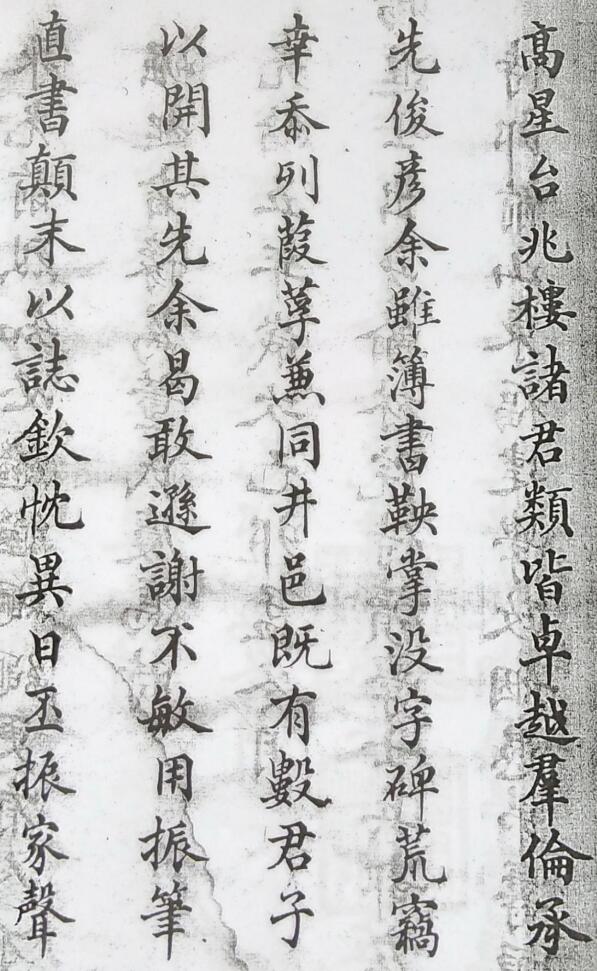 高星台兆樓諸君類皆卓越羣倫承
先俊彥余雖簿書鞅掌没字碑荒竊
幸忝列葭莩兼同井邑既有數君子
以開其先余曷敢遜謝不敏用振筆
直書顛末以誌欽忱異日丕振家聲